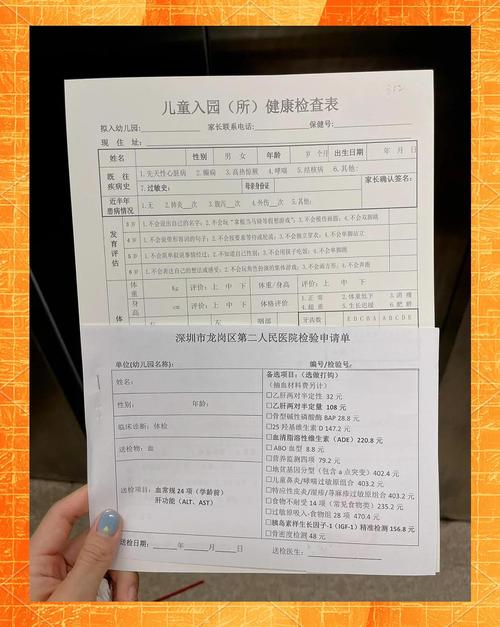 352
儿童入园（所）健康检查表
拟入幼儿园： 家长联系电话： 保健号：
现 住 址：
姓名 性别 男 女 年龄 岁 个月 出生日期 年 月 日
既往疾病史 1.先天性心脏病 2.癫痫 3.高热惊厥 4.哮喘 5.结核病 6.其他：
7.过敏史： 母亲身份证 家长确认签名：
近半年患病情况 1.无 2.肺炎__次 3.腹泻__次 4.外伤__次 5.其他：
发育评估
3岁 1.不会说出自己的名字；2.不会玩“拿棍当马骑等假想游戏”；3.不会模仿画圆；4.不会双脚跳
4岁 1.不会说带形容词的句子；2.不会按要求等待或轮流；3.不会独立穿衣；4.不会单脚站立
5岁 1.不能简单叙说事情经过；2.不知道自己性别；3.不会用筷子吃饭；4.不会单脚跳
6岁 1.不会表达自己的想法或感受；2.不会玩角色扮演的集体游戏；3.不会画方形；4.不会奔跑
体重 kg 评价：上 中 下 体重/身高 评价：上 中 下 1.正常 2.体重低下 3.消瘦
身高 cm 评价：上 中 下 体格评价 4.超重 5.生长迟缓 6.肥胖
体
牙齿数 E D C B A A B C D E
深圳市龙岗区第二人民医院检验申请单
单位（幼儿园名称）： 编号/检验号：
姓名：
性别： 年龄：
临床诊断：体检
送检物：血
送检项目：血常规 24 项（学龄前）
肝功能（ALT、AST）
备选项目：（选做打钩）
（抽血材料费另计）
□乙肝两对半定性 32 元
□乙肝两对半定量 108 元
□骨型碱性磷酸酶 BAP 28.8 元
□25 羟基维生素 D 147.2 元
□血清脂溶性维生素（ADE）220.8 元
□ABO 血型 8.8 元
□营养监测四项 79.2 元
□地贫基因分型（包含 a 点突变）402.4 元
□儿童鼻炎/哮喘过敏原组合 403.2 元
□特应性皮炎/湿疹/荨麻疹过敏原组合 403.2 元
□食物不耐受 14 项（常见食物类）235.2 元
□过敏原吸入-食物组 28 项 470.4 元
□胰岛素样生长因子-1（IGF-1）精准检测 156.8 元
□骨密度检测 48 元
送检日期：____年____月____日 送检医生：